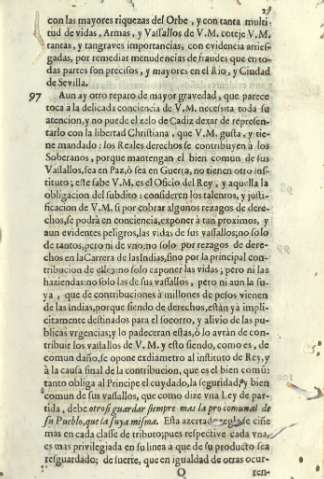 con las mayores riquezas del Orbe, y con tanta multi-
tud de vidas, Armas, y Vassallos de V.M. coteje V.M.
tantas, y tan graves importancias, con evidencia arries-
gadas, por remediar menudencias de fraudes que en to-
das partes son precisos, y mayores en el Rio, y Ciudad
de Sevilla.
97 Aun ay otro reparo de mayor gravedad, que parece
toca à la delicada conciencia de V.M. necesita toda su
atencion, y no puede el zelo de Cadiz dexar de represen-
tarlo con la libertad Christiana, que V.M. gusta, y tie-
ne mandado: los Reales derechos se contribuyen à los
Soberanos, porque mantengan el bien comun de sus
Vassallos, sea en Paz, ò sea en Guerra, no tienen otro ins-
tituto; este sabe V.M. es el Oficio del Rey, y aquella la
obligacion del subdito: consideren los talentos, y justi-
ficacion de V.M. si por cobrar algunos rezagos de dere-
chos, se podrà en conciencia, exponer à tan proximos, y
aun evidentes peligros, las vidas de sus vassallos; no solo
de tantos, pero ni de vno: no solo por rezagos de dere-
chos en la Carrera de las Indias, sino por la principal con-
tribucion de ellos: no solo exponer las vidas; pero ni las
haziendas: no solo las de sus vassallos, pero ni aun la su-
ya, que de contribuciones à millones de pesos vienen
de las indias, porque siendo de derechos, estàn ya impli-
citamente destinados para el socorro, y alivio de las pu-
blicas vrgencias; y lo padeceràn estas, ò lo avràn de con-
tribuir los vassallos de V.M. y esto siendo, como es, de
comun daño, se opone exdiametro al instituto de Rey, y
à la causa final de la contribucion, que es el bien comũ:
tanto obliga al Principe el cuydado, la seguridad, y bien
comun de sus vassallos, que como dize vna Ley de par-
tida, debe otrosi guardar siempre mas la pro comunal de
su Pueblo, que la suya misma. Esta acertada regla se ciñe
mas en cada classe de tributo; pues respective cada vna,
es mas privilegiada en su linea a que de su producto sea
resguardado; de suerte, que en igualdad de otras ocur-
O ren-